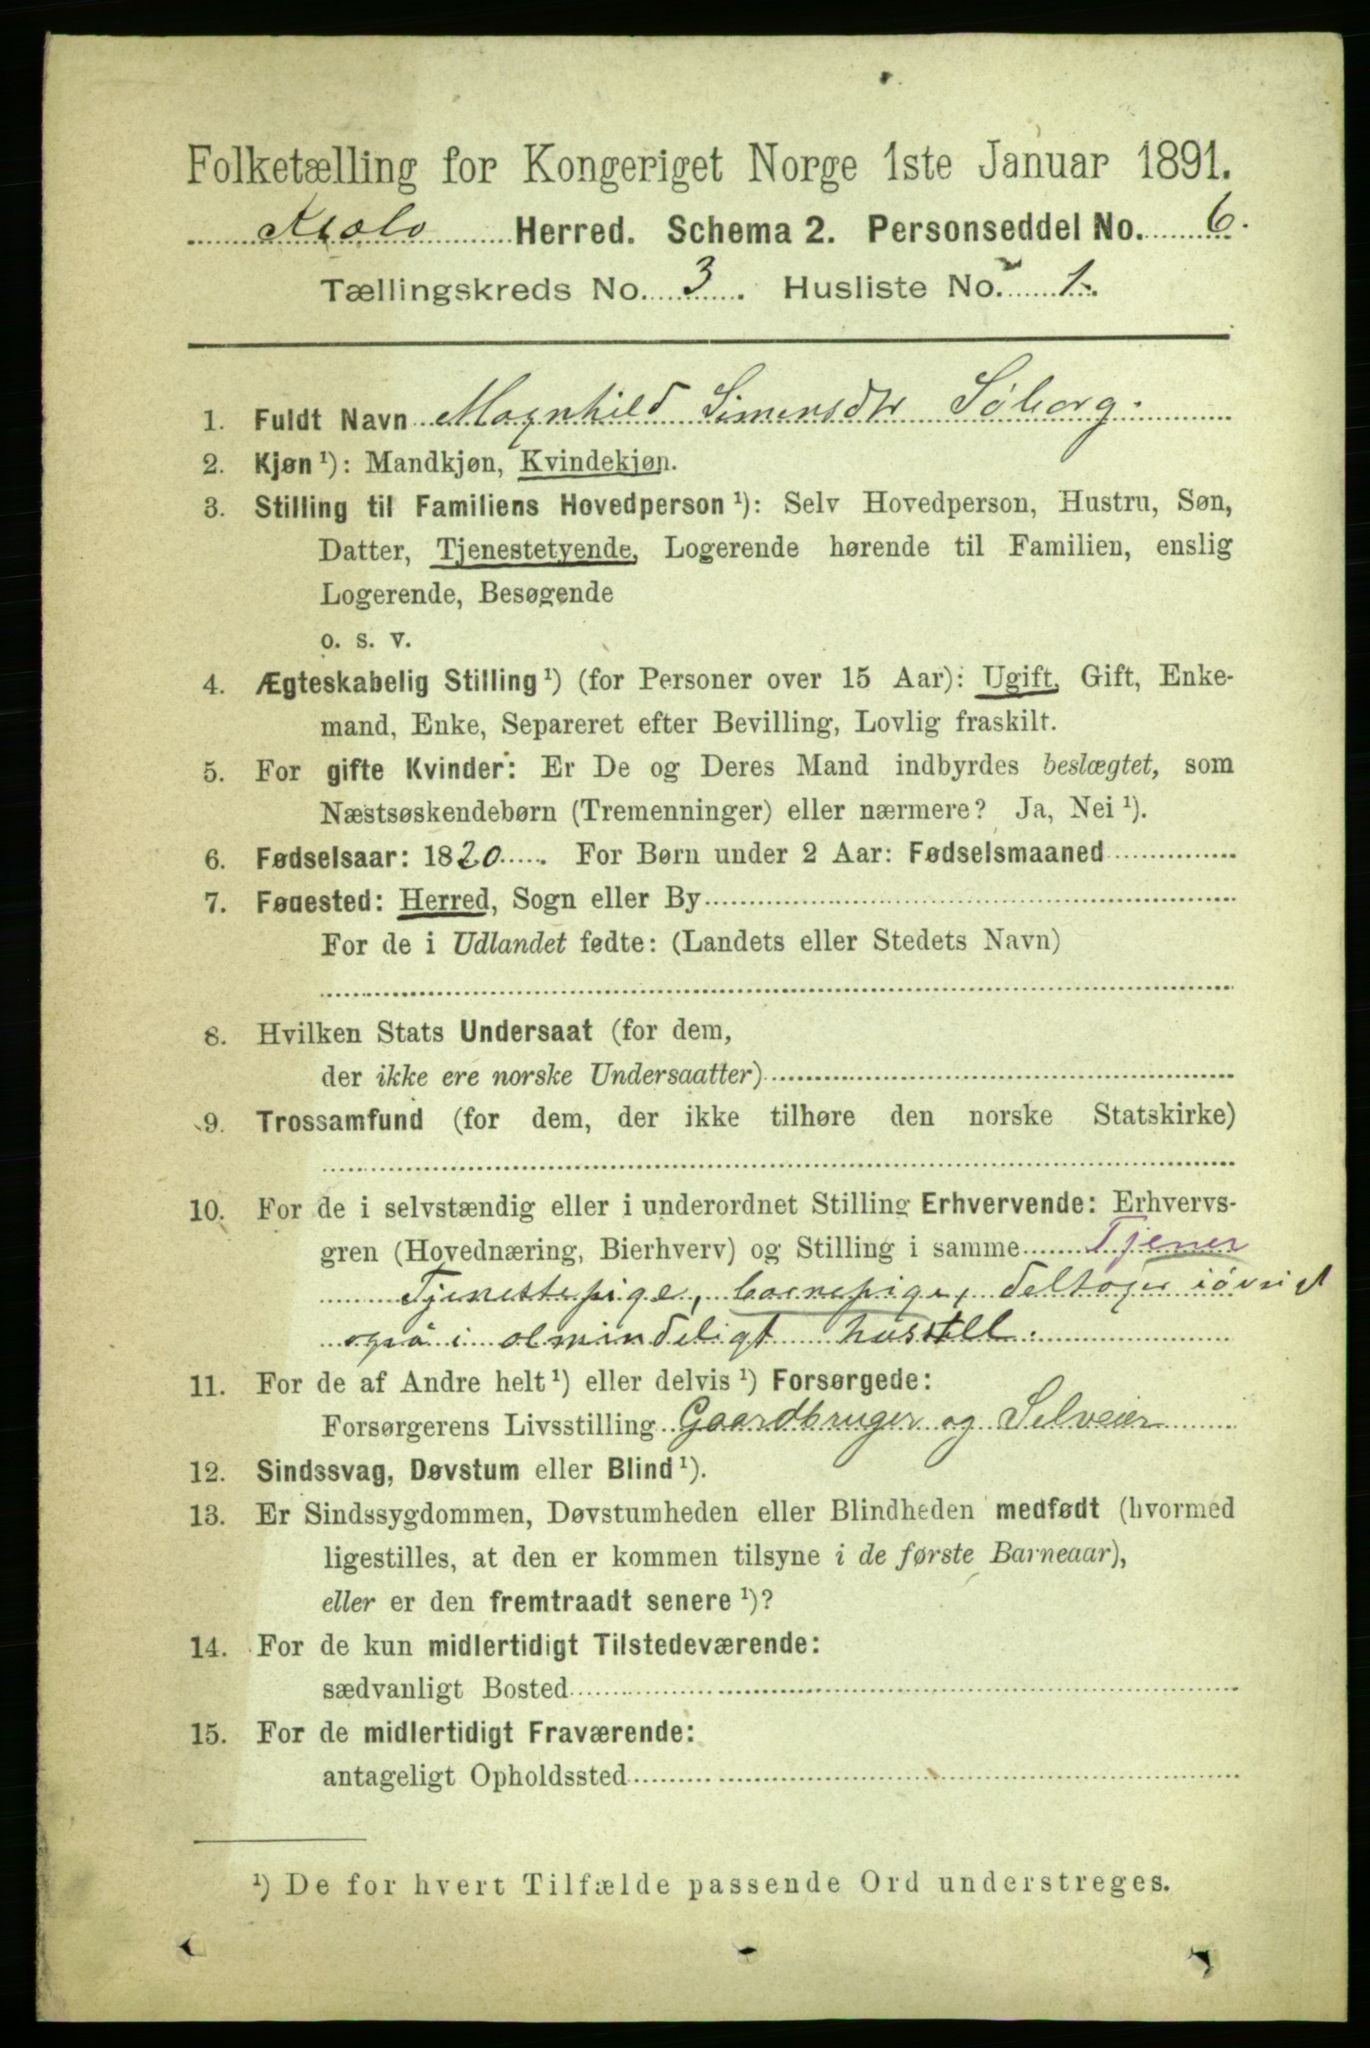 Folketælling for Kongeriget Norge 1ste Januar 1891.
Herred. Schema 2. Personseddel No. 6.
Tællingskreds No. 3. Husliste No. 1.
1. Fuldt Navn Magnhild Simensdtr Søberg.
2. Kjøn ¹): Mandkjøn, Kvindekjøn.
3. Stilling til Familiens Hovedperson ¹): Selv Hovedperson, Hustru, Søn,
Datter, Tjenestetyende, Logerende hørende til Familien, enslig
Logerende, Besøgende
o. s. v.
4. Ægteskabelig Stilling ¹) (for Personer over 15 Aar): Ugift, Gift, Enke-
mand, Enke, Separeret efter Bevilling, Lovlig fraskilt.
5. For gifte Kvinder: Er De og Deres Mand indbyrdes beslægtet, som
Næstsøskendebørn (Tremenninger) eller nærmere? Ja, Nei ¹).
6. Fødselsaar: 1820. For Børn under 2 Aar: Fødselsmaaned
7. Fødested: Herred, Sogn eller By
For de i Udlandet fødte: (Landets eller Stedets Navn)
8. Hvilken Stats Undersaat (for dem,
der ikke ere norske Undersaatter)
9. Trossamfund (for dem, der ikke tilhøre den norske Statskirke)
10. For de i selvstændig eller i underordnet Stilling Erhvervende: Erhvervs-
gren (Hovednæring, Bierhverv) og Stilling i samme Tjener
Tjenestepige, barnepige, deltager iøvrigt
også i almindeligt husstell.
11. For de af Andre helt ¹) eller delvis ¹) Forsørgede:
Forsørgerens Livsstilling Gaardbruger og Selveier
12. Sindssvag, Døvstum eller Blind ¹).
13. Er Sindssygdommen, Døvstumheden eller Blindheden medfødt (hvormed
ligestilles, at den er kommen tilsyne i de første Barneaar),
eller er den fremtraadt senere ¹)?
14. For de kun midlertidigt Tilstedeværende:
sædvanligt Bosted
15. For de midlertidigt Fraværende:
antageligt Opholdssted
¹) De for hvert Tilfælde passende Ord understreges.